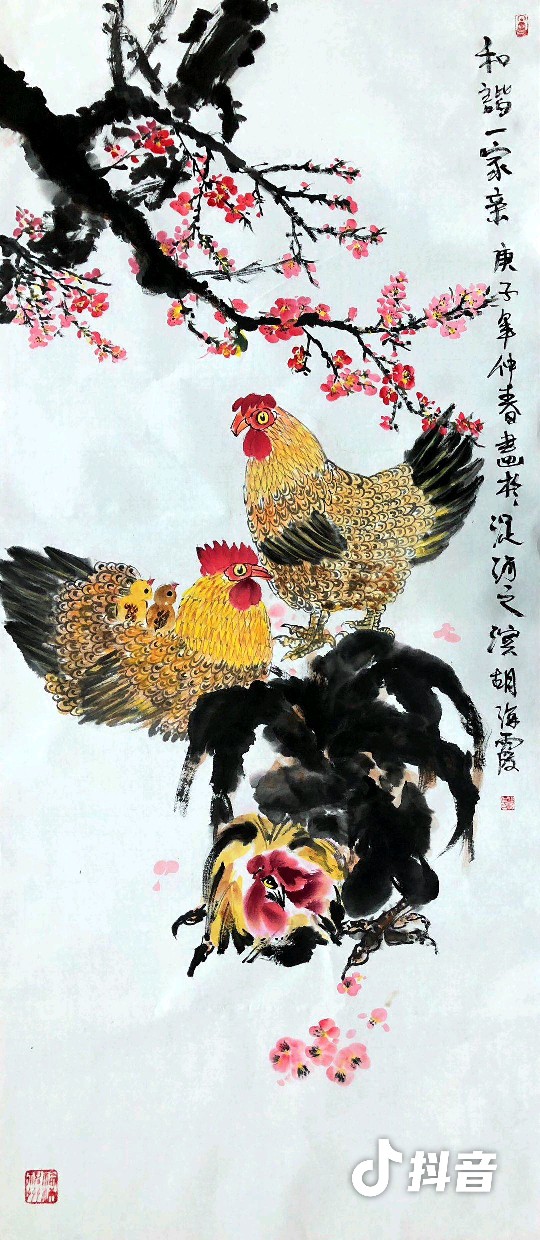 和谐一家亲 庚子年仲春画于淀河之滨 胡海霞
抖音